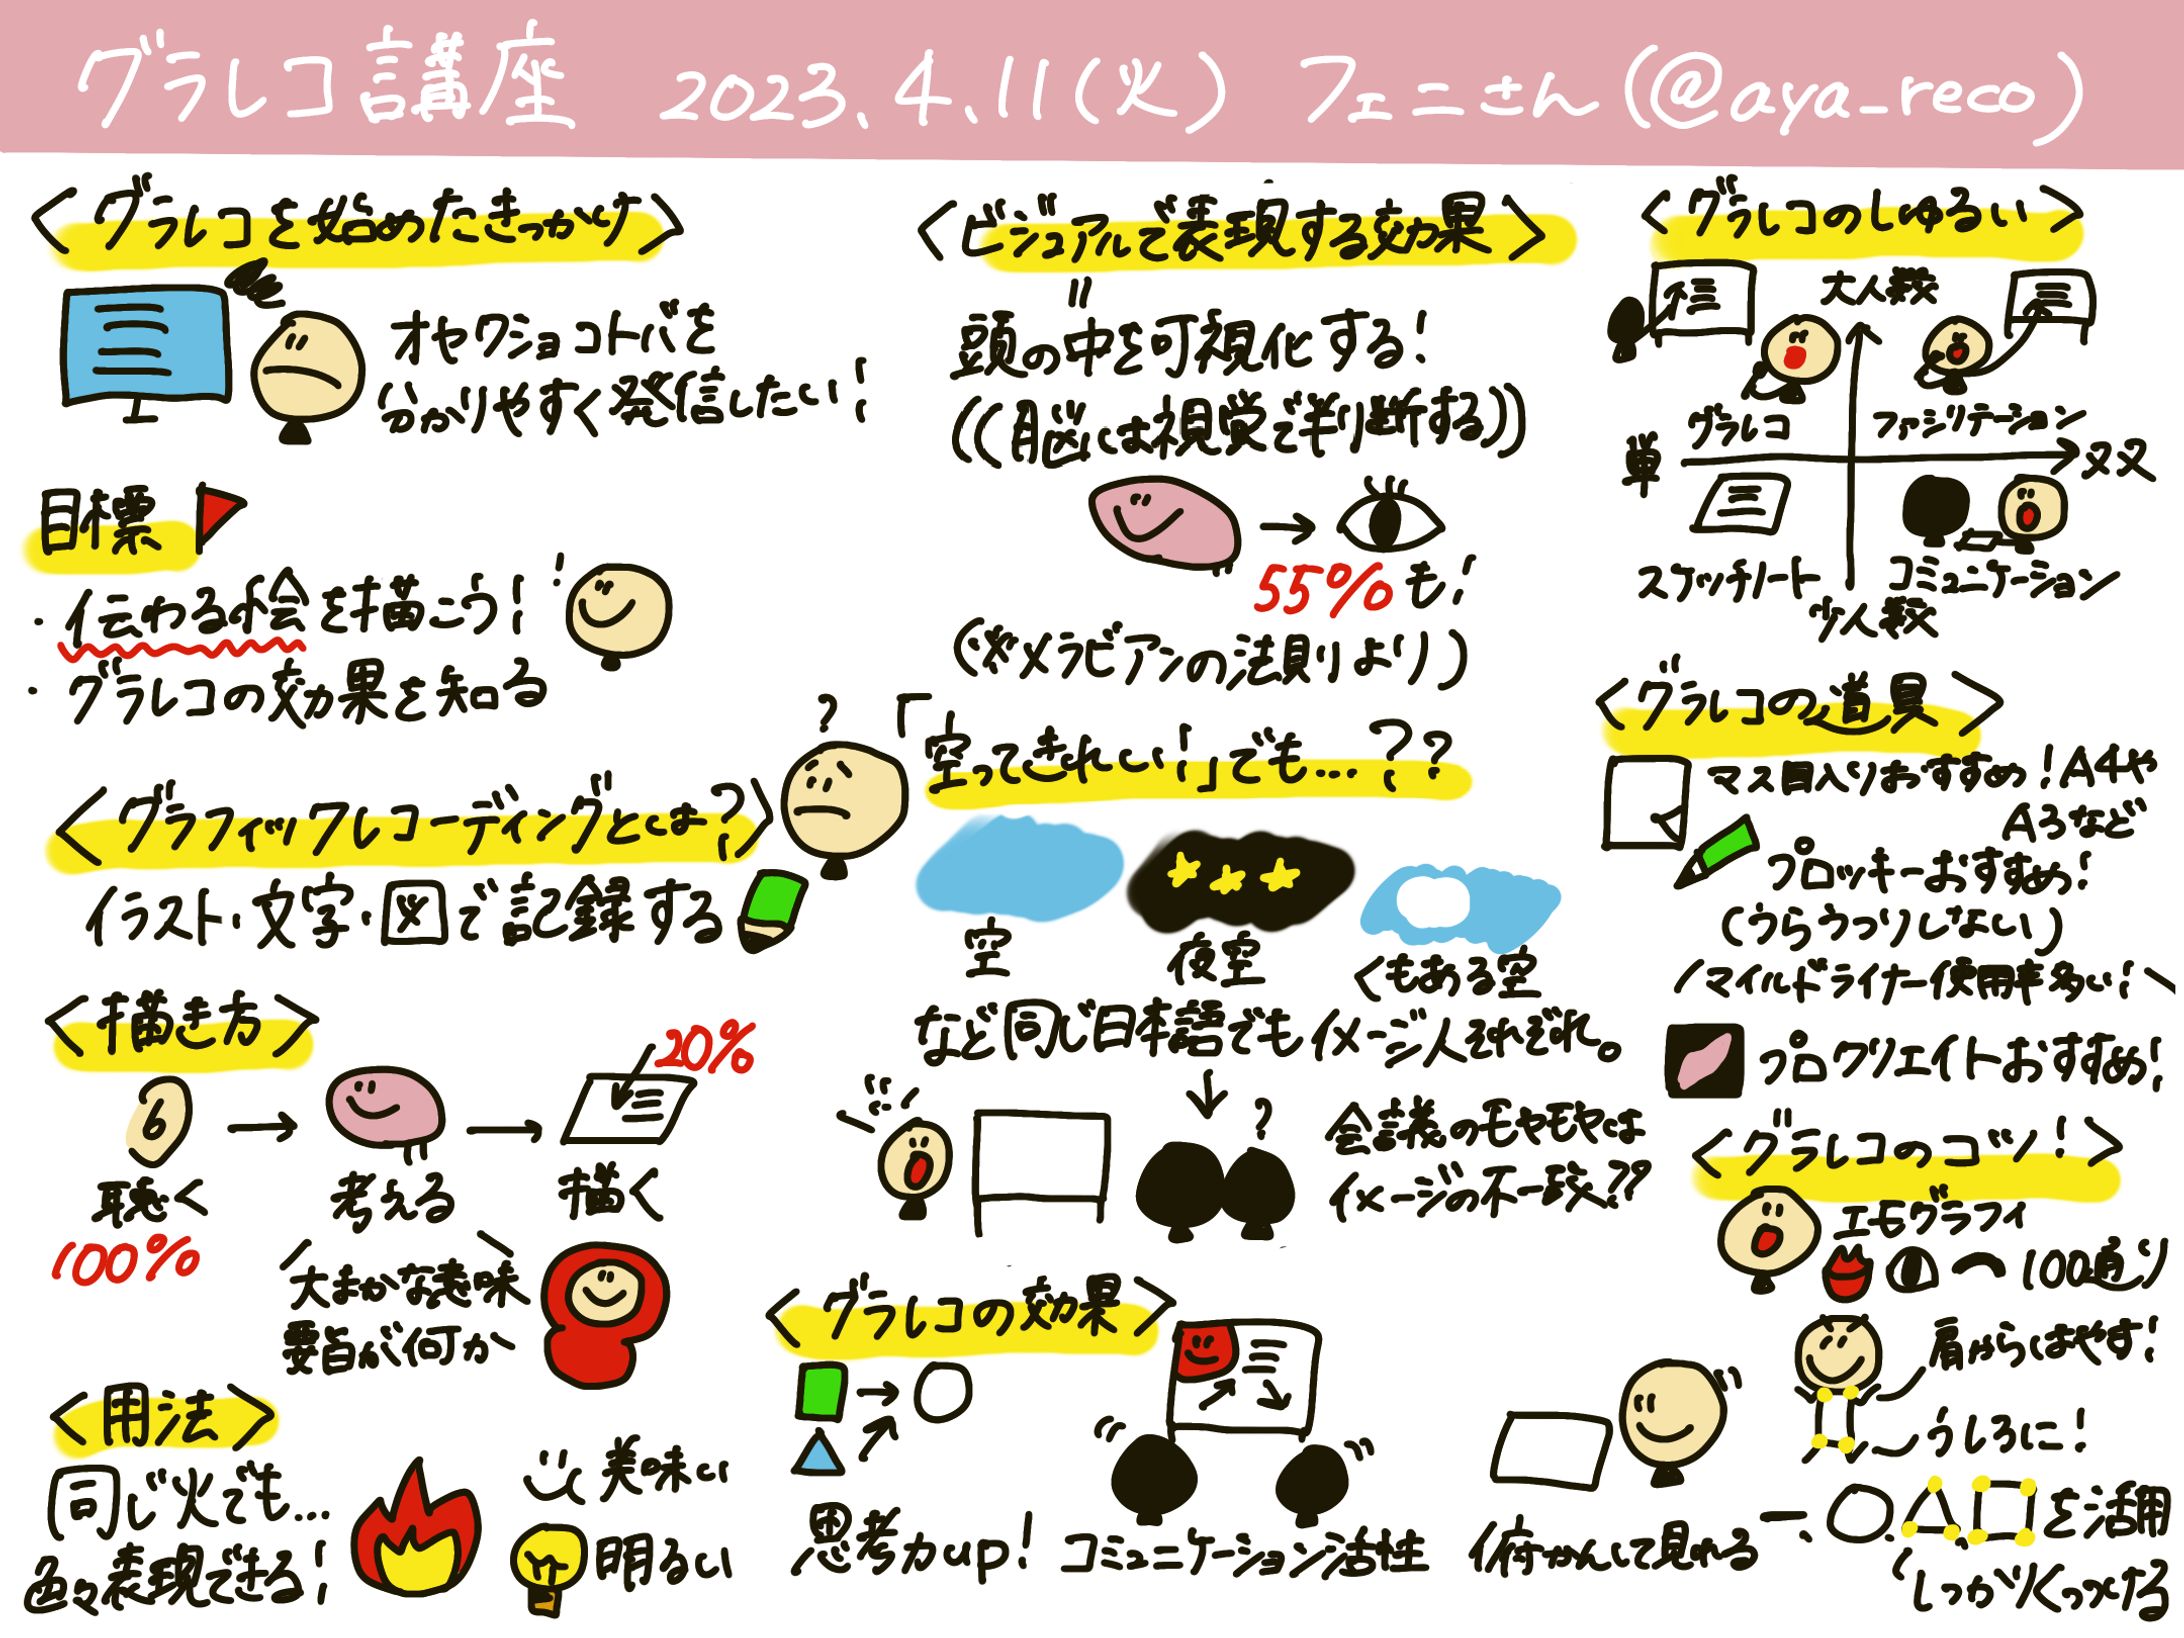 グラレコ講座 2023.4.11(火) フェニさん(@aya_reco)
<グラレコを始めたきっかけ>
オヤクショコトバを
分かりやすく発信したい!
目標
・伝わる絵を描こう!
・グラレコの効果を知る
<グラフィックレコーディングとは?>
?
イラスト・文字・図で記録する
<描き方>
20%
聴く
考える
描く
100%
大まかな意味
要旨が何か
<用法>
同じ火でも…
色々表現できる!
美味い
明るい
<ビジュアルで表現する効果>
=
頭の中を可視化する!
((脳は視覚で判断する))
55%も!
(※メラビアンの法則より)
「空ってきれい!」でも…??
空
夜空
くもある空
など同じ日本語でもイメージ人それぞれ。
?
会議のモヤモヤは
イメージの不一致??
<グラレコの効果>
思考力up!
コミュニケーション活性
俯かんして見れる
<グラレコのしゅるい>
大人数
グラレコ
ファシリテーション
単
双
スケッチノート
コミュニケーション
少人数
<グラレコの道具>
マス目入りおすすめ!A4や
A3など
プロッキーおすすめ!
(うらうつりしない)
マイルドライナー使用率多い!
プロクリエイトおすすめ!
<グラレコのコツ!>
エモグラフィ
100通り
肩からはやす!
うしろに!
○△□を活用
しっかりくっつける